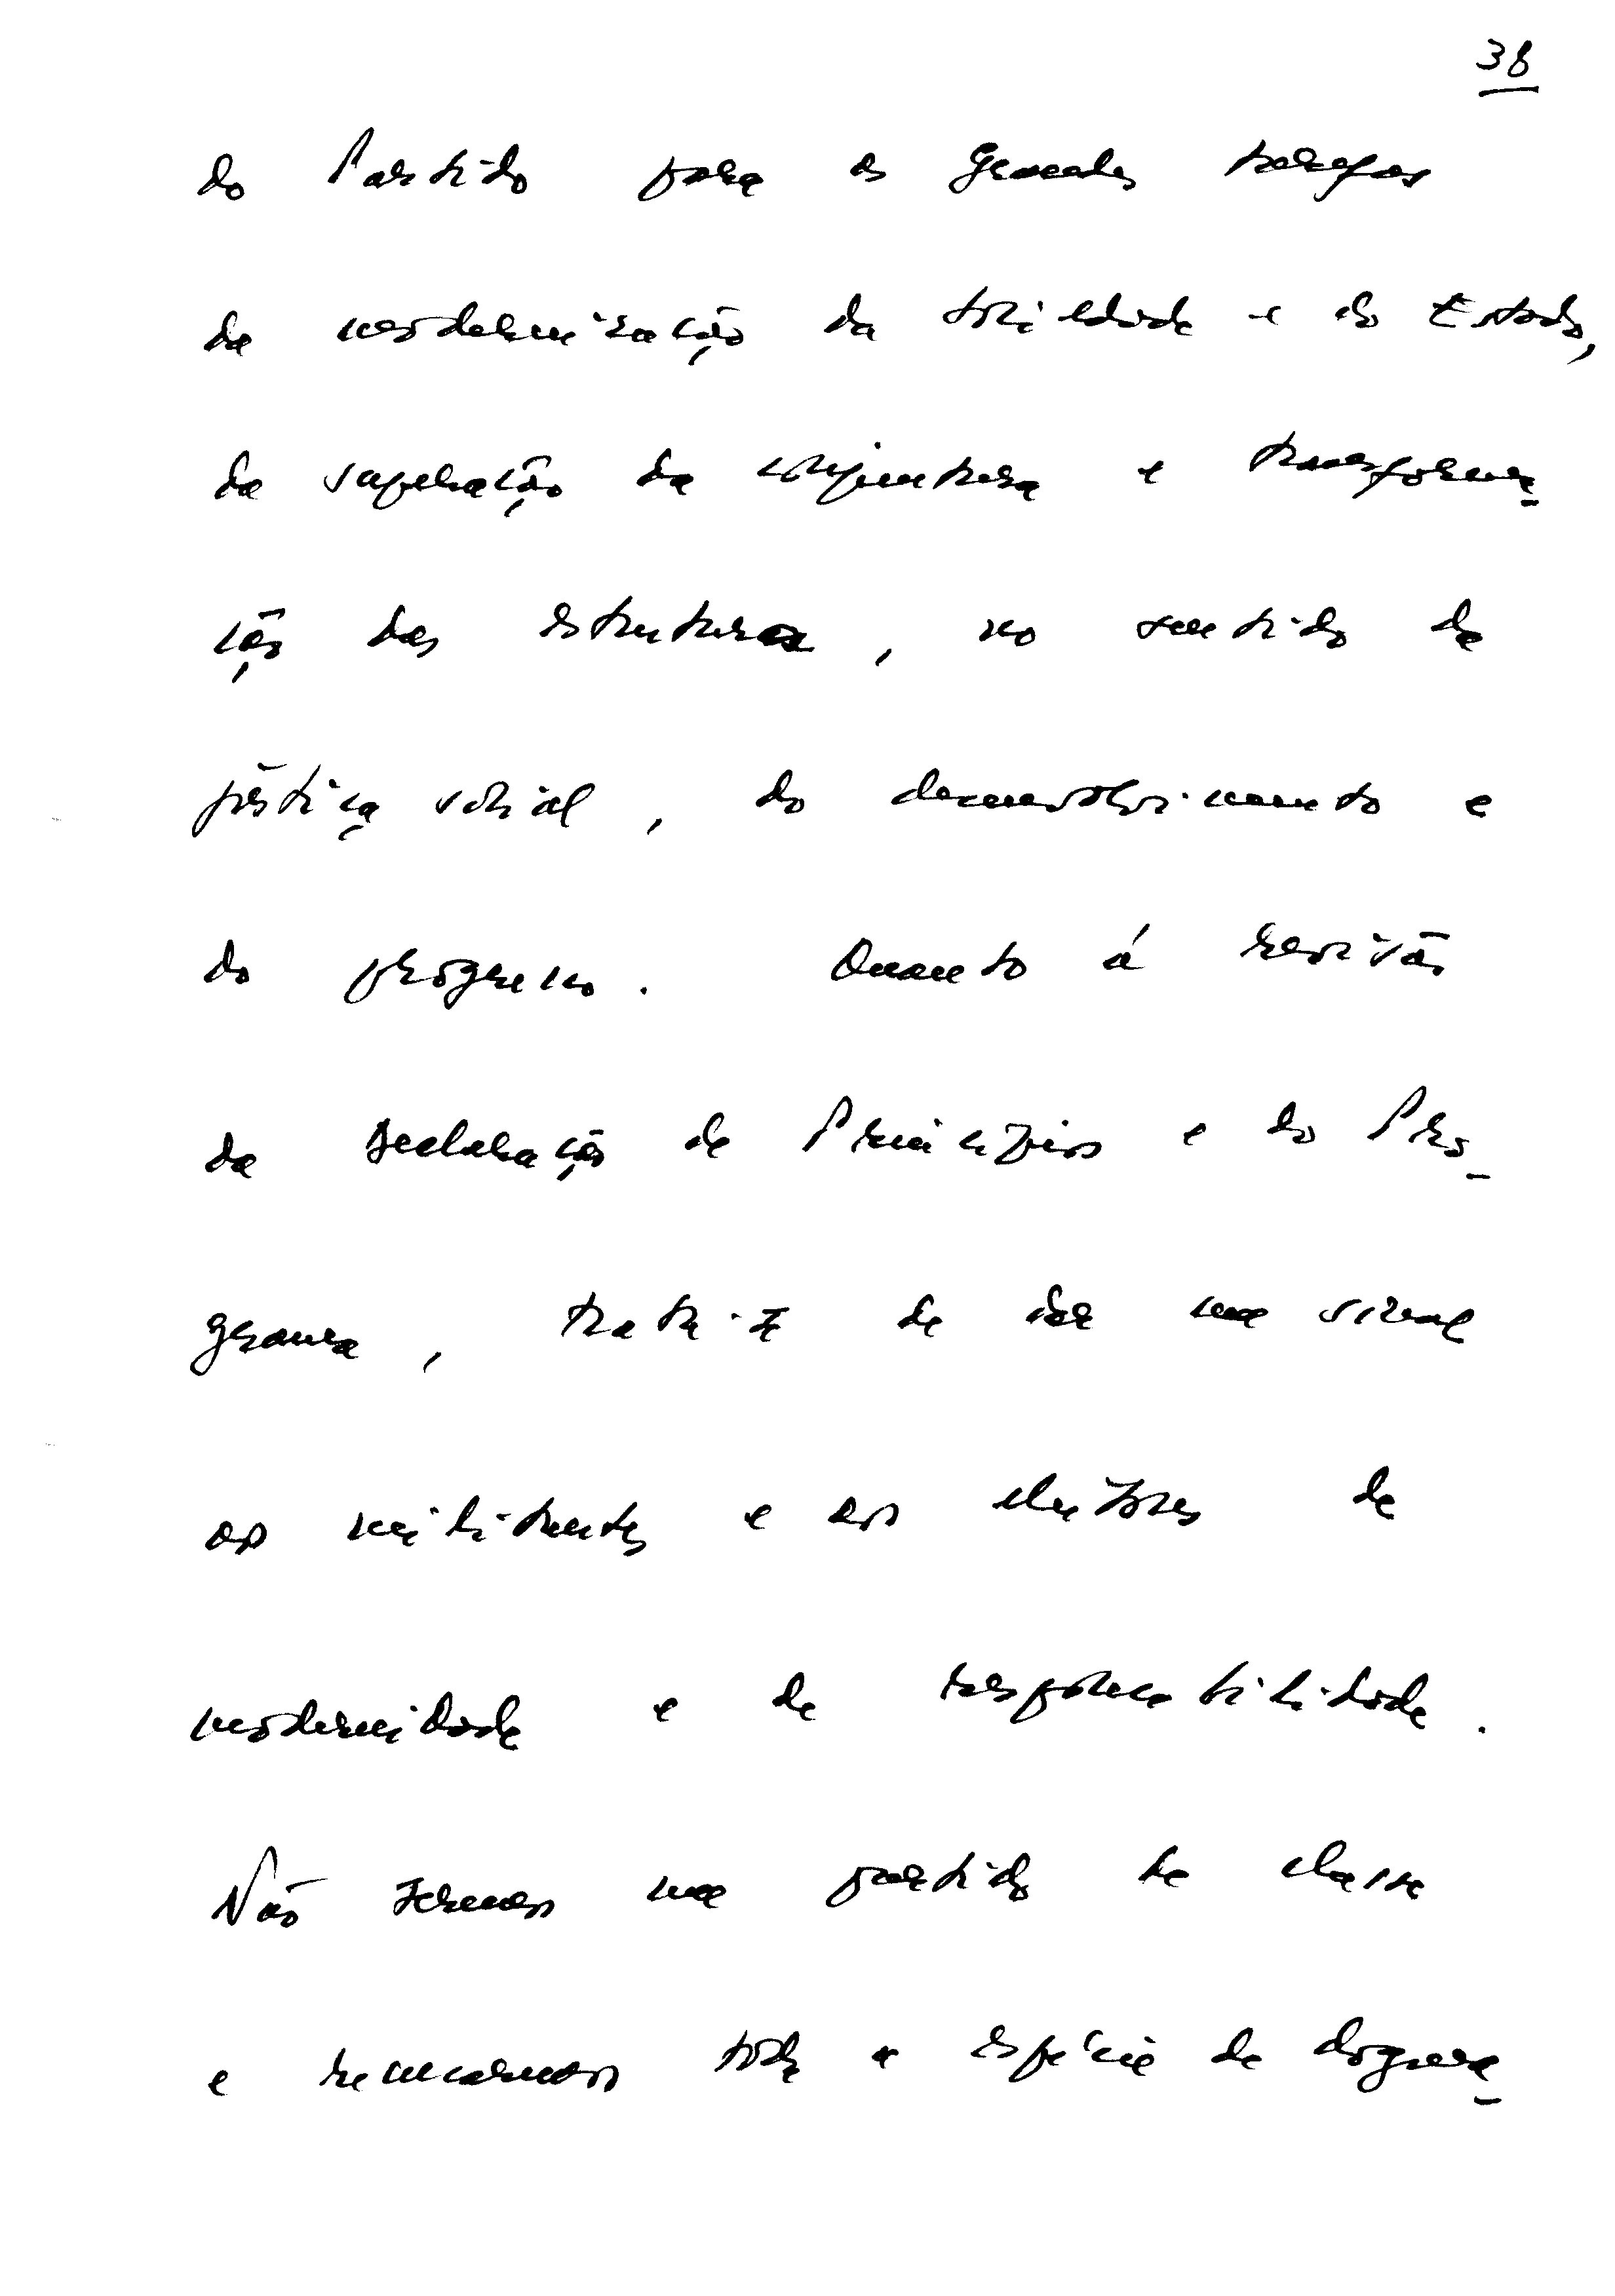 38
do Partido para as grandes tarefas
da modernização da sociedade e do Estado,
da superação da conjuntura e transforma-
ção das estruturas, no sentido da
justiça social, do desenvolvimento e
do progresso. Quanto á revisão
da Declaração de Princípios e do Pro-
grama, trata-se de dar um sinal
aos militantes e aos eleitores de
modernidade e de responsabilidade.
Não seremos um partido de classe
e recusamos toda a espécie de dogma-